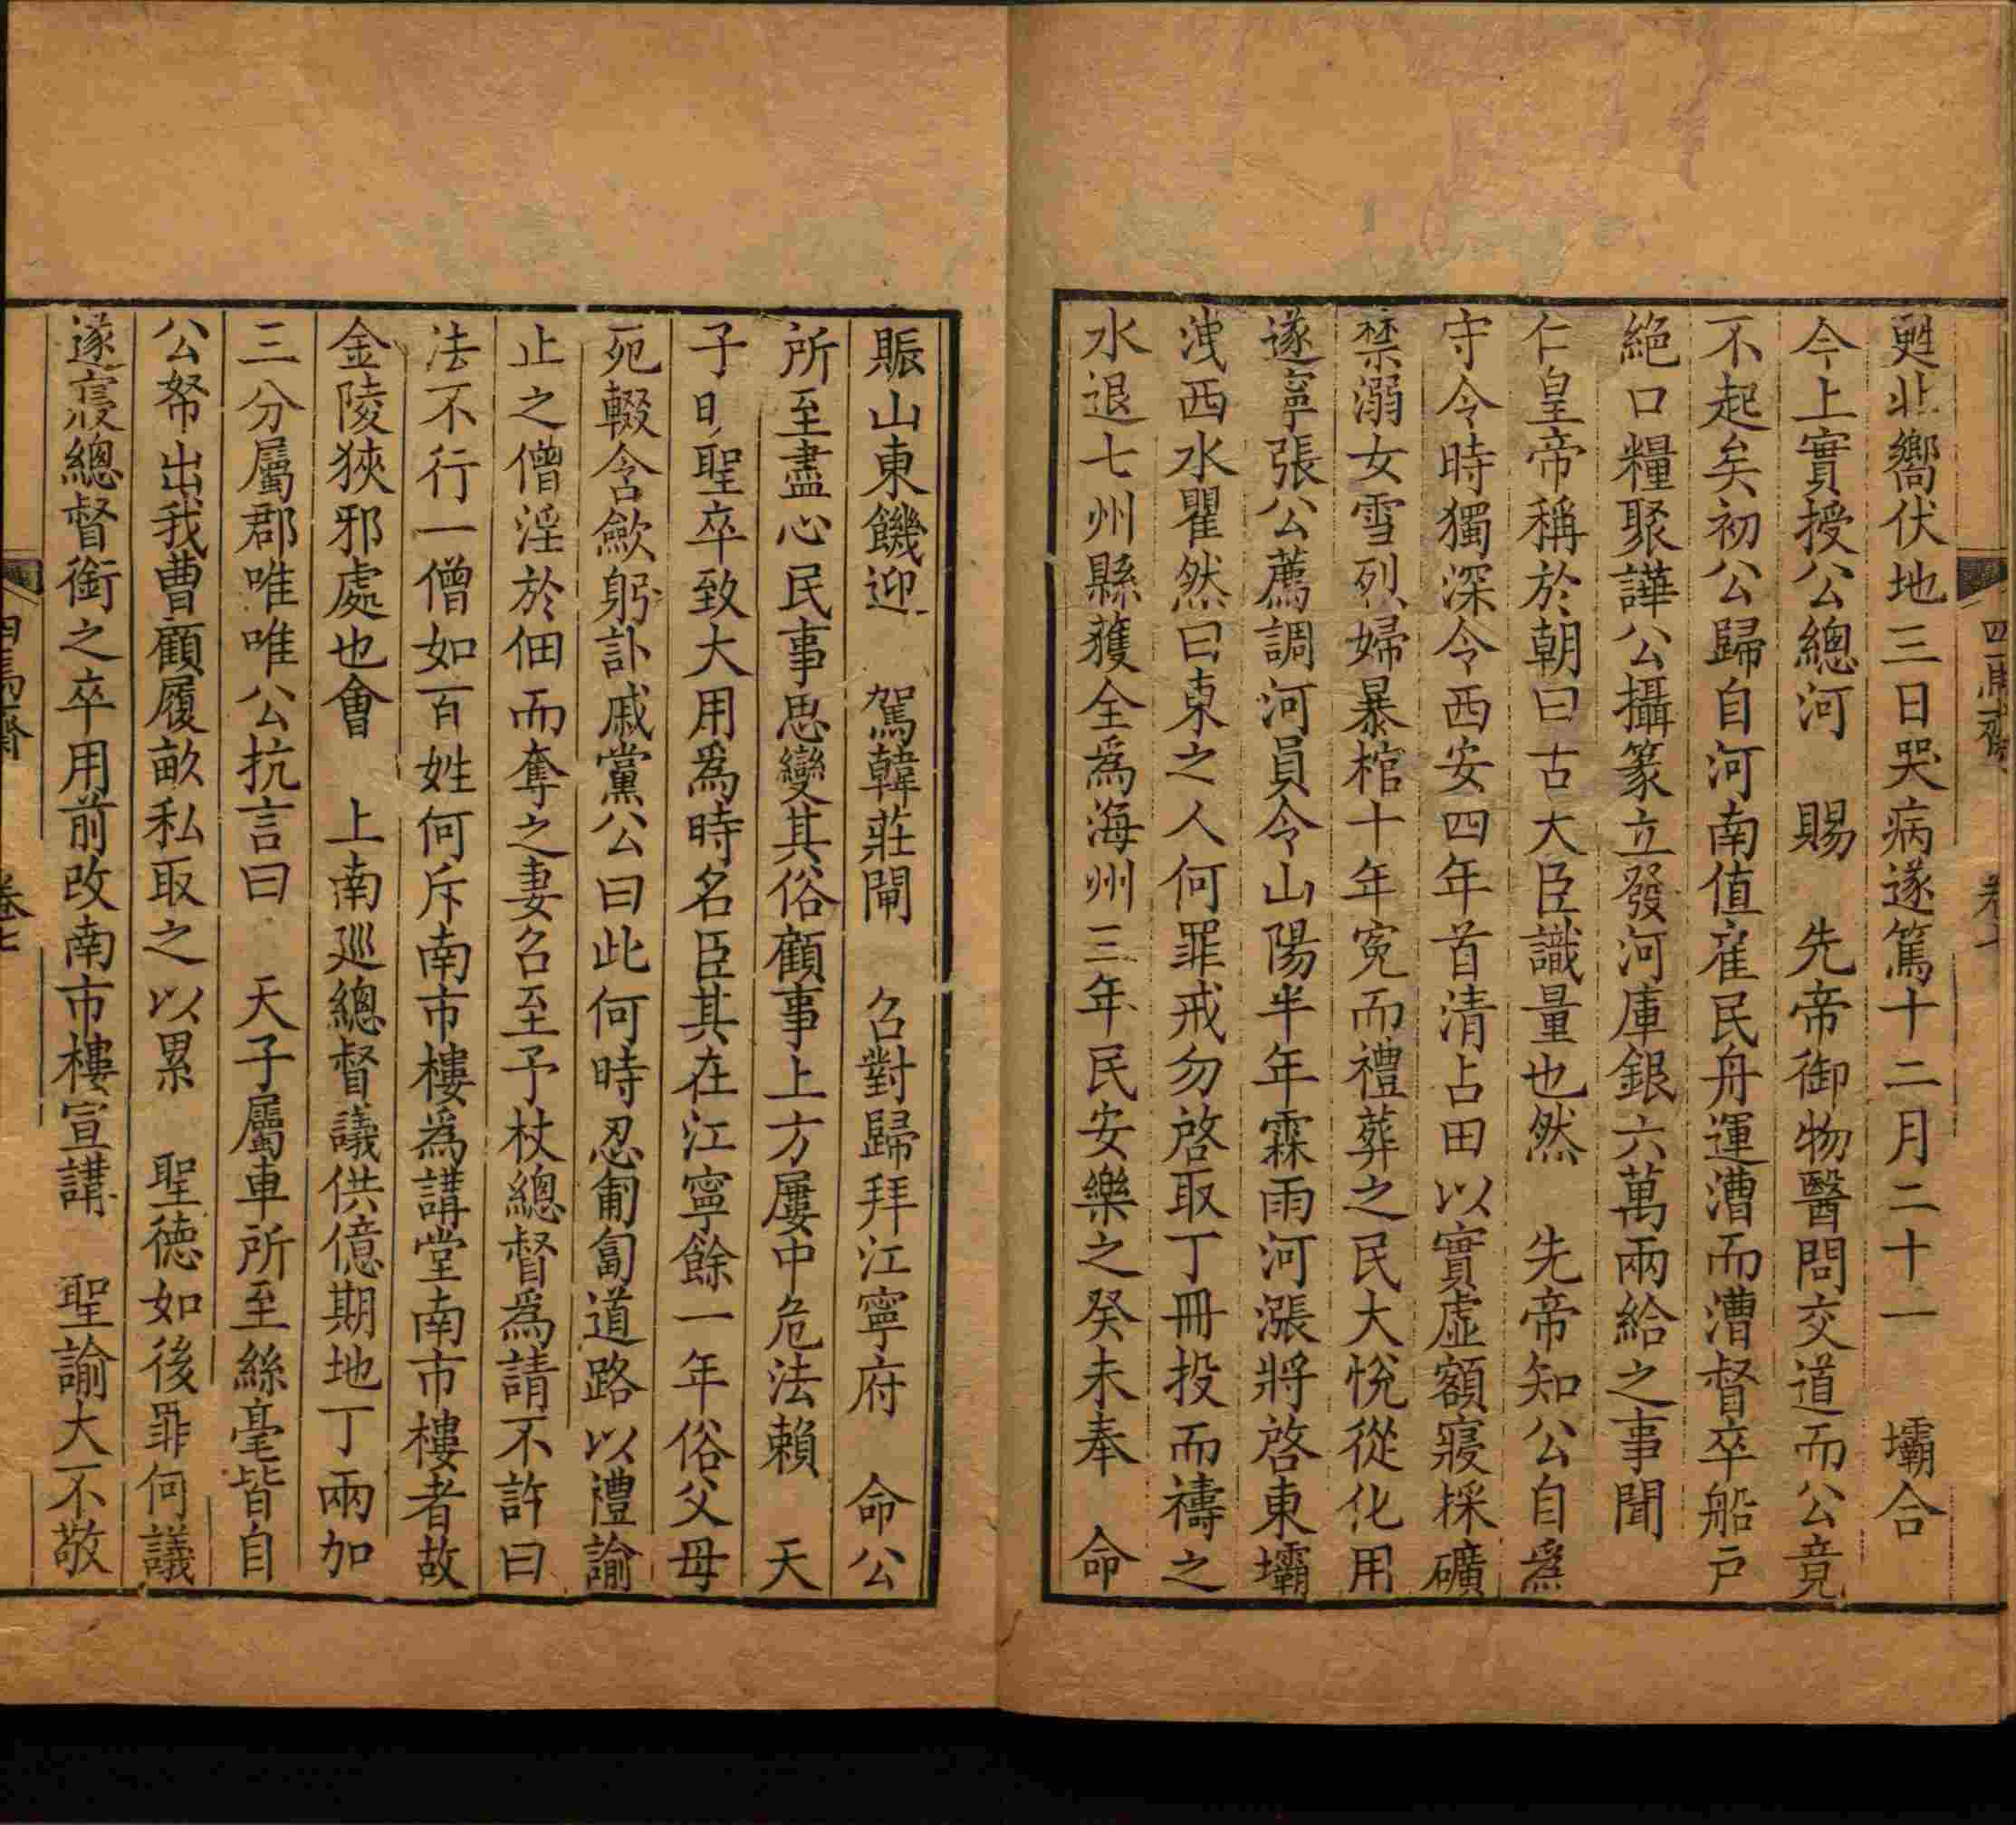 甦北嚮伏地三日哭病遂篤十二月二十一　壩合
今上實授公總河　賜　先帝御物醫問交道而公竟
不起矣初公歸自河南值雇民舟運漕而漕督卒船戸
絕口糧聚譁公攝篆立發河庫銀六萬兩給之事聞
仁皇帝稱於朝曰古大臣識量也然　先帝知公自爲
守令時獨深令西安四年首清占田以實虛額寢採礦
禁溺女雪烈婦暴棺十年寃而禮葬之民大悅從化用
遂寧張公薦調河員令山陽半年霖雨河漲將啓東壩
洩西水瞿然曰東之人何罪戒勿啓取丁冊投而禱之
水退七州縣獲全爲海州三年民安樂之癸未奉　命
賑山東饑迎　駕韓莊閘　召對歸拜江寧府　命公
所至盡心民事思變其俗顧事上方屢中危法賴　天
子曰聖卒致大用爲時名臣其在江寧餘一年俗父母
死輟含歛躬訃戚黨公曰此何時忍匍匐道路以禮諭
止之僧淫於佃而奪之妻召至予杖總督爲請不許曰
法不行一僧如百姓何斥南市樓爲講堂南市樓者故
金陵狹邪處也會　上南巡總督議供億期地丁兩加
三分屬郡唯唯公抗言曰　天子屬車所至絲毫皆自
公帑出我曹顧履畝私取之以累　聖德如後罪何議
遂寢總督銜之卒用前改南市樓宣講　聖諭大不敬
卷七